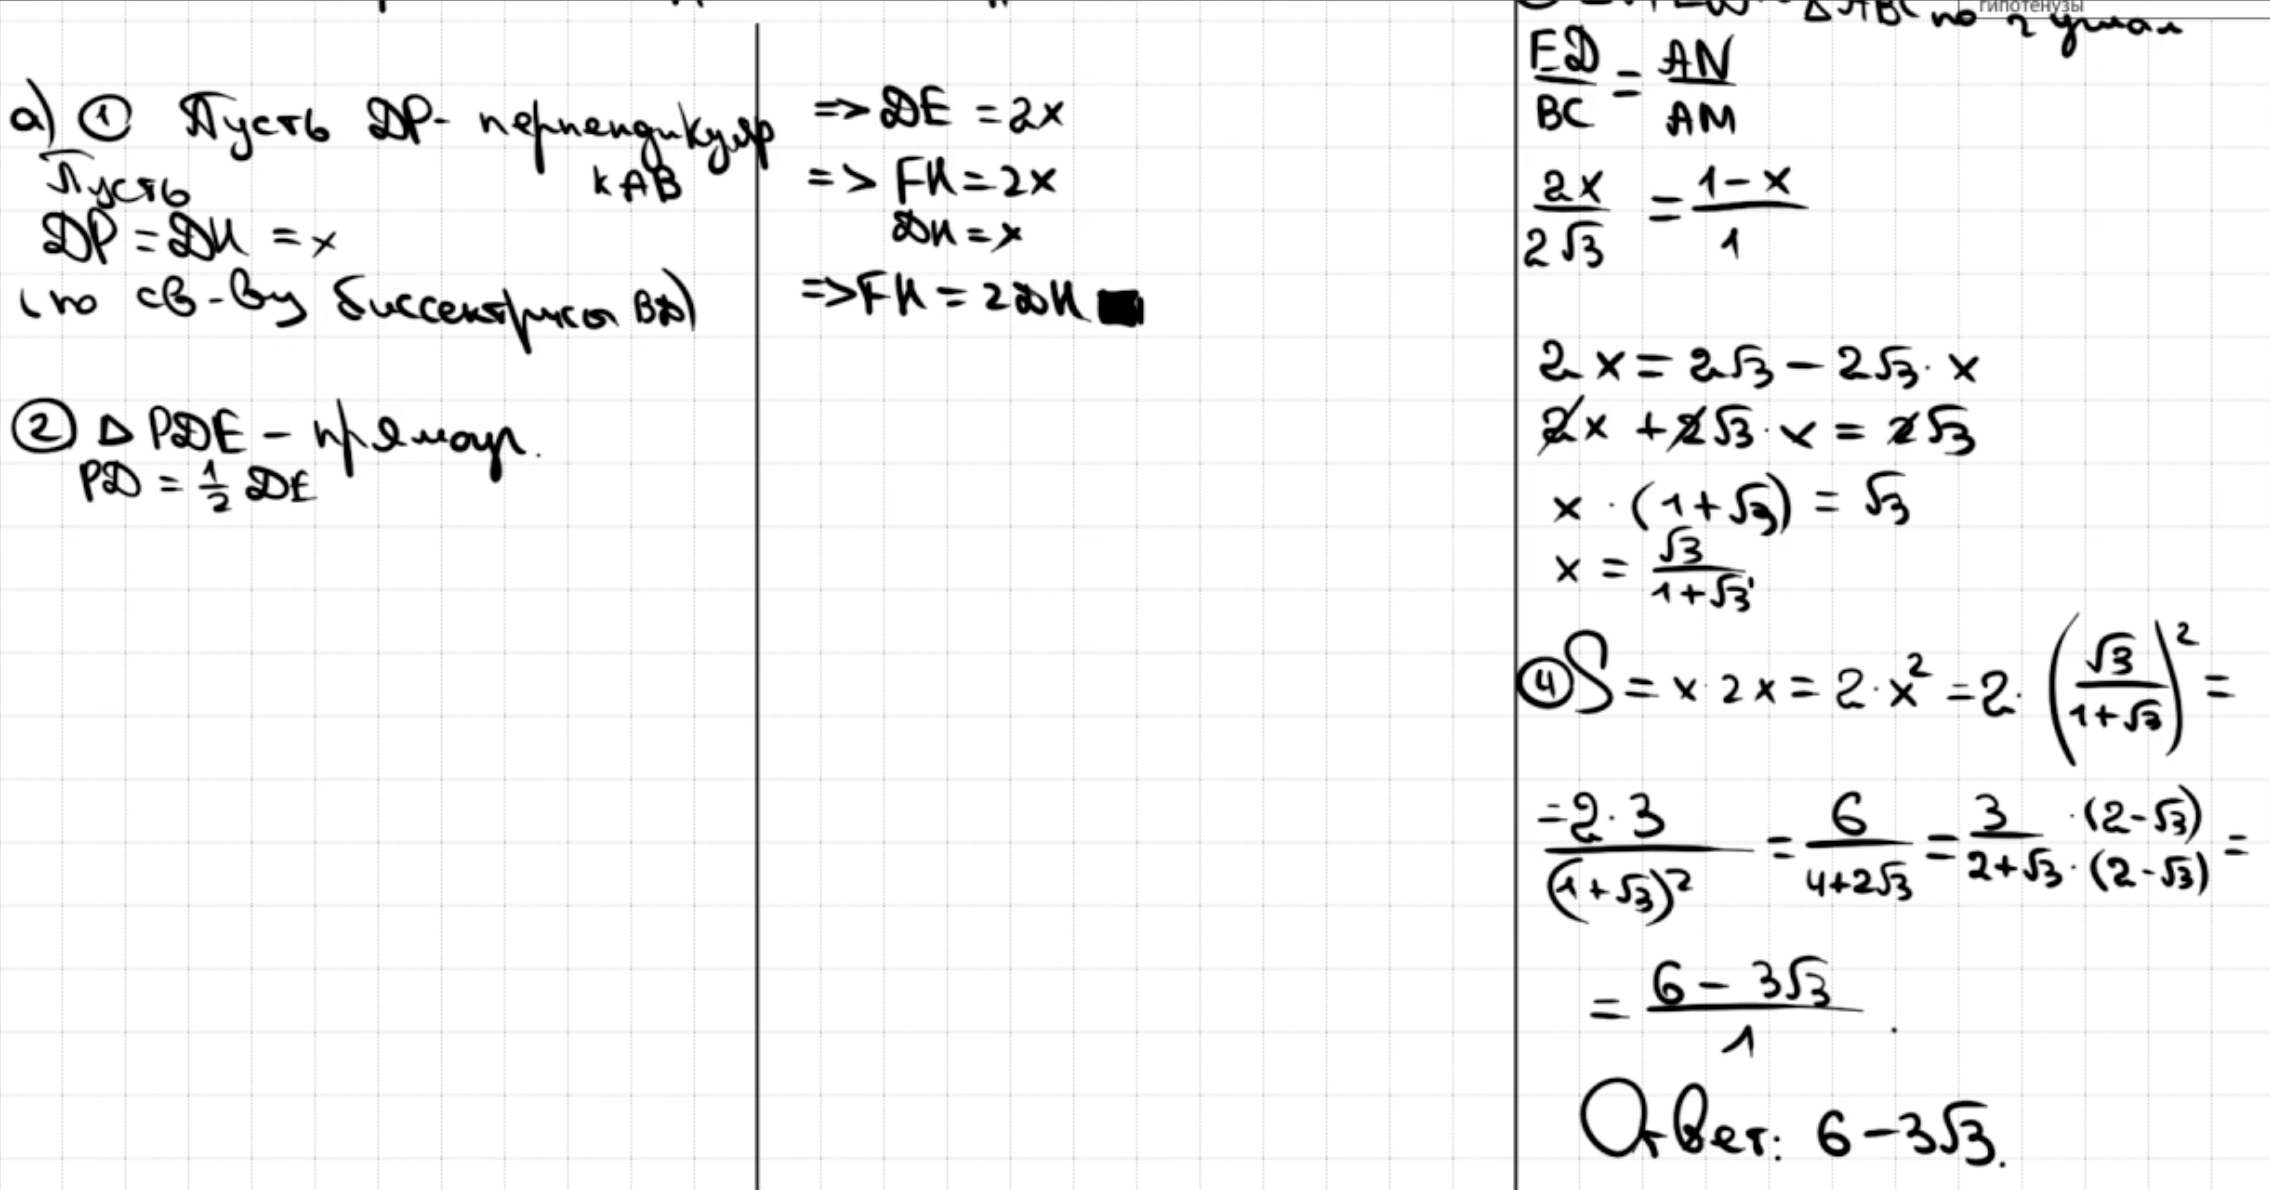 а) ① Пусть DP- перпендикуляр
к AB
Пусть
DP = DK = x
(по св-ву биссектрисы BD)
② Δ PDE - прямоуг.
PD = 1/2 DE
=> DE = 2x
=> FK = 2x
DK = x
=> FK = 2DK
гипотенузы
Δ ABC по 2 углам
ED/BC = AN/AM
2x/2√3 = 1-x/1
2x = 2√3 - 2√3 · x
2x + 2√3 · x = 2√3
x · (1+√3) = √3
x = √3/1+√3
④ S = x · 2x = 2 · x² = 2 · (√3/1+√3)² =
= 2·3/(1+√3)² = 6/4+2√3 = 3 · (2-√3)/2+√3 · (2-√3) =
= 6 - 3√3/1 .
Ответ: 6 - 3√3.